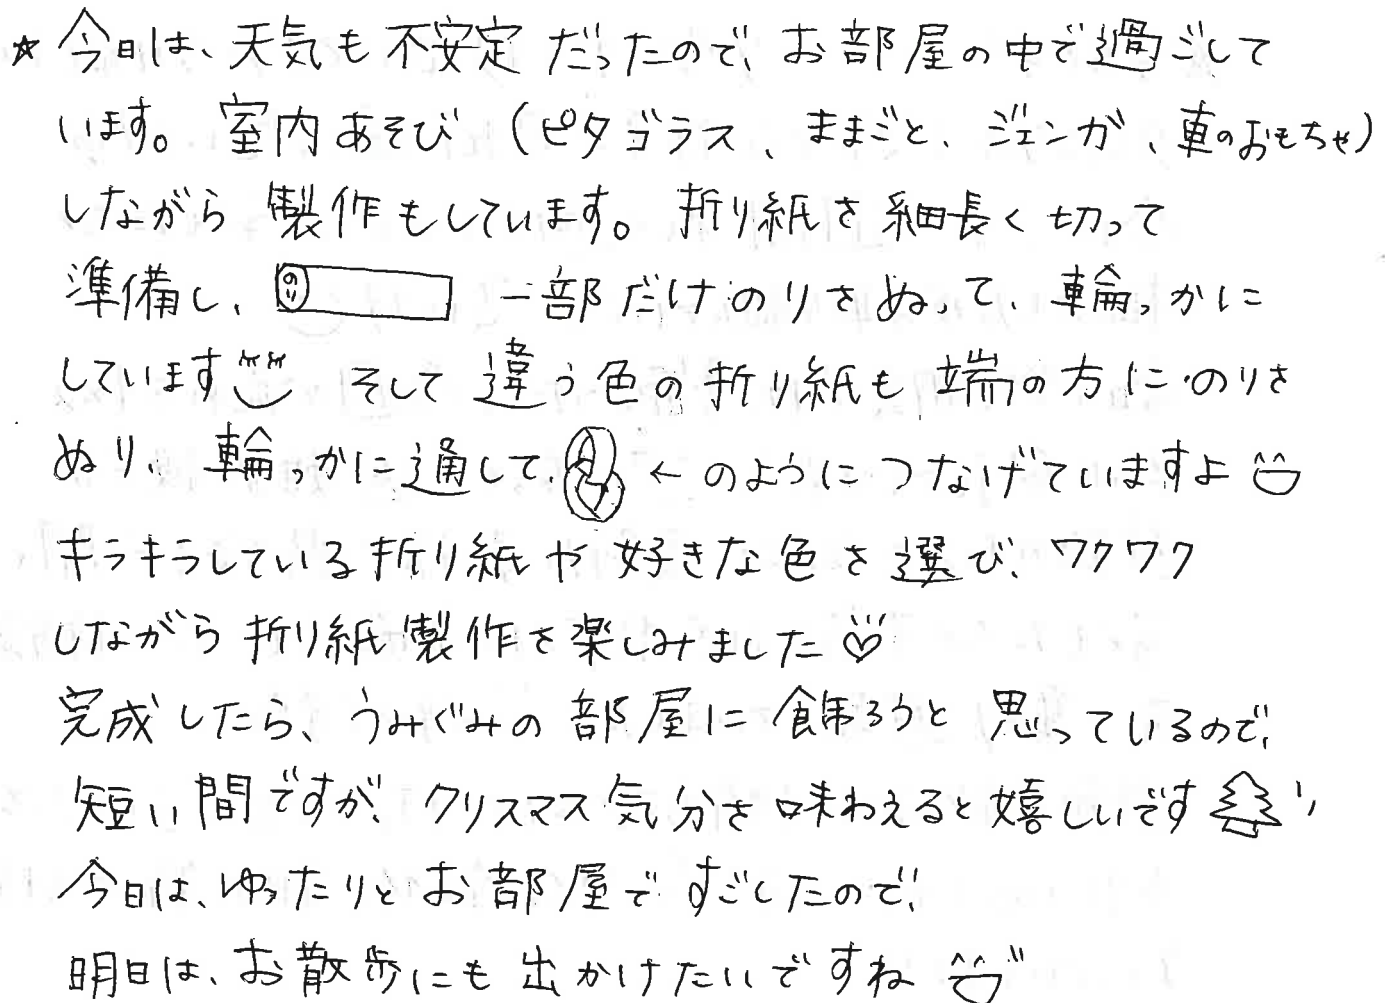 ☆ 今日は、天気も不安定だったので、お部屋の中で過ごして
います。室内あそび（ピタゴラス、ままごと、ジェンガ、車のおもちゃ）
しながら製作もしています。折り紙を細長く切って
準備し、のり 一部だけのりをぬって、輪っかに
しています そして違う色の折り紙も端の方にのりを
ぬり、輪っかに通して、←のようにつなげていますよ
キラキラしている折り紙や好きな色を選び、ワクワク
しながら折り紙製作を楽しみました♡
完成したら、うみぐみの部屋に飾ろうと思っているので、
短い間ですが、クリスマス気分を味わえると嬉しいです
今日は、ゆったりとお部屋ですごしたので、
明日は、お散歩にも出かけたいですね